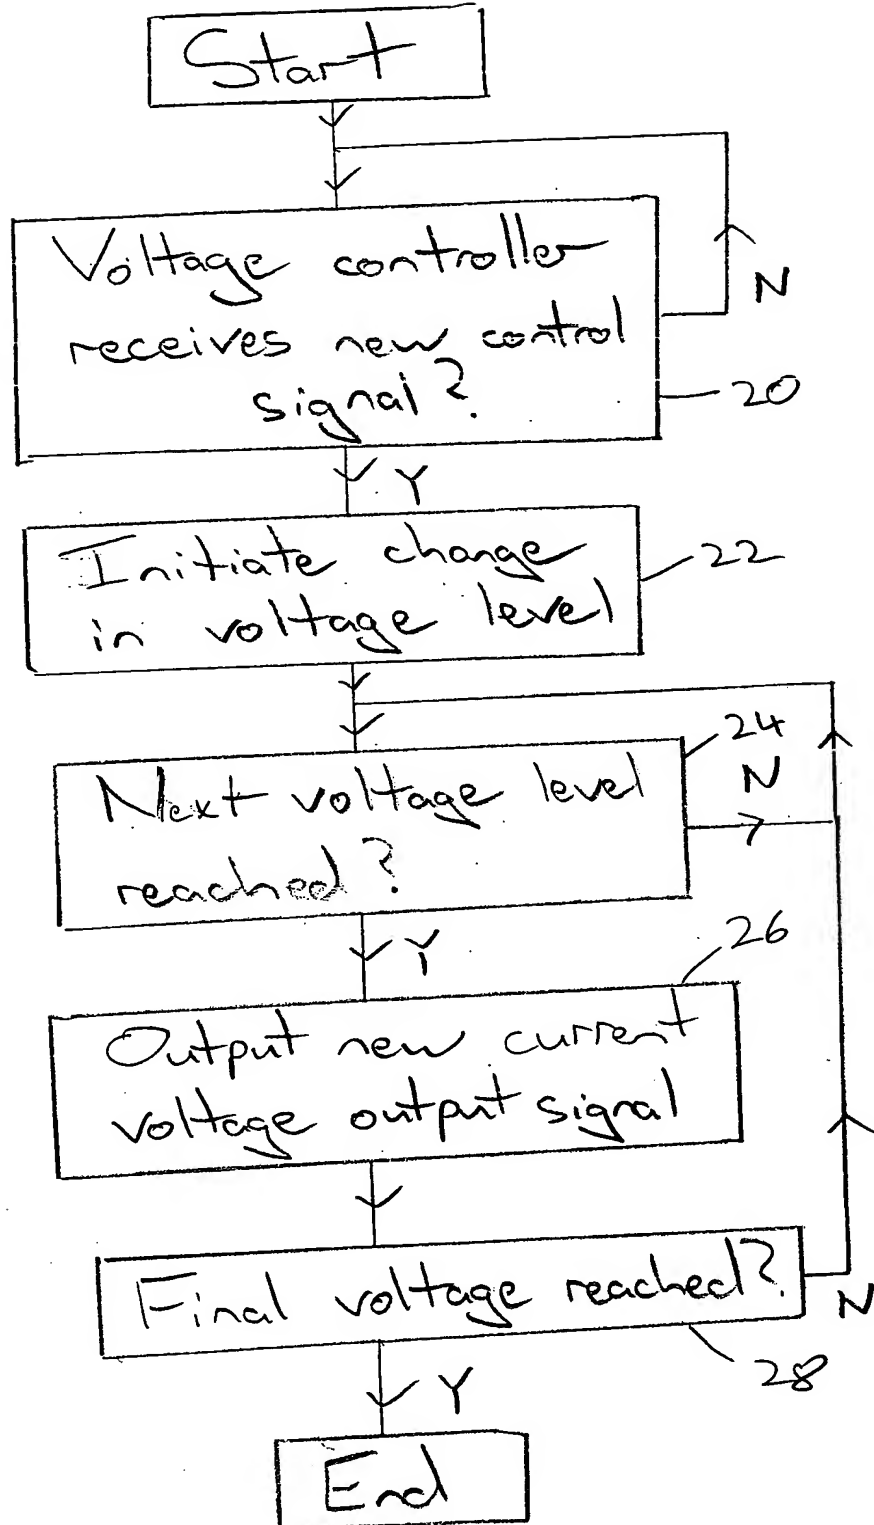 Start
Voltage controller
receives new control
signal?
N
20
Y
Initiate change
in voltage level
22
24
Next voltage level
reached?
N
Y
26
Output new current
voltage output signal
Final voltage reached?
N
28
Y
End